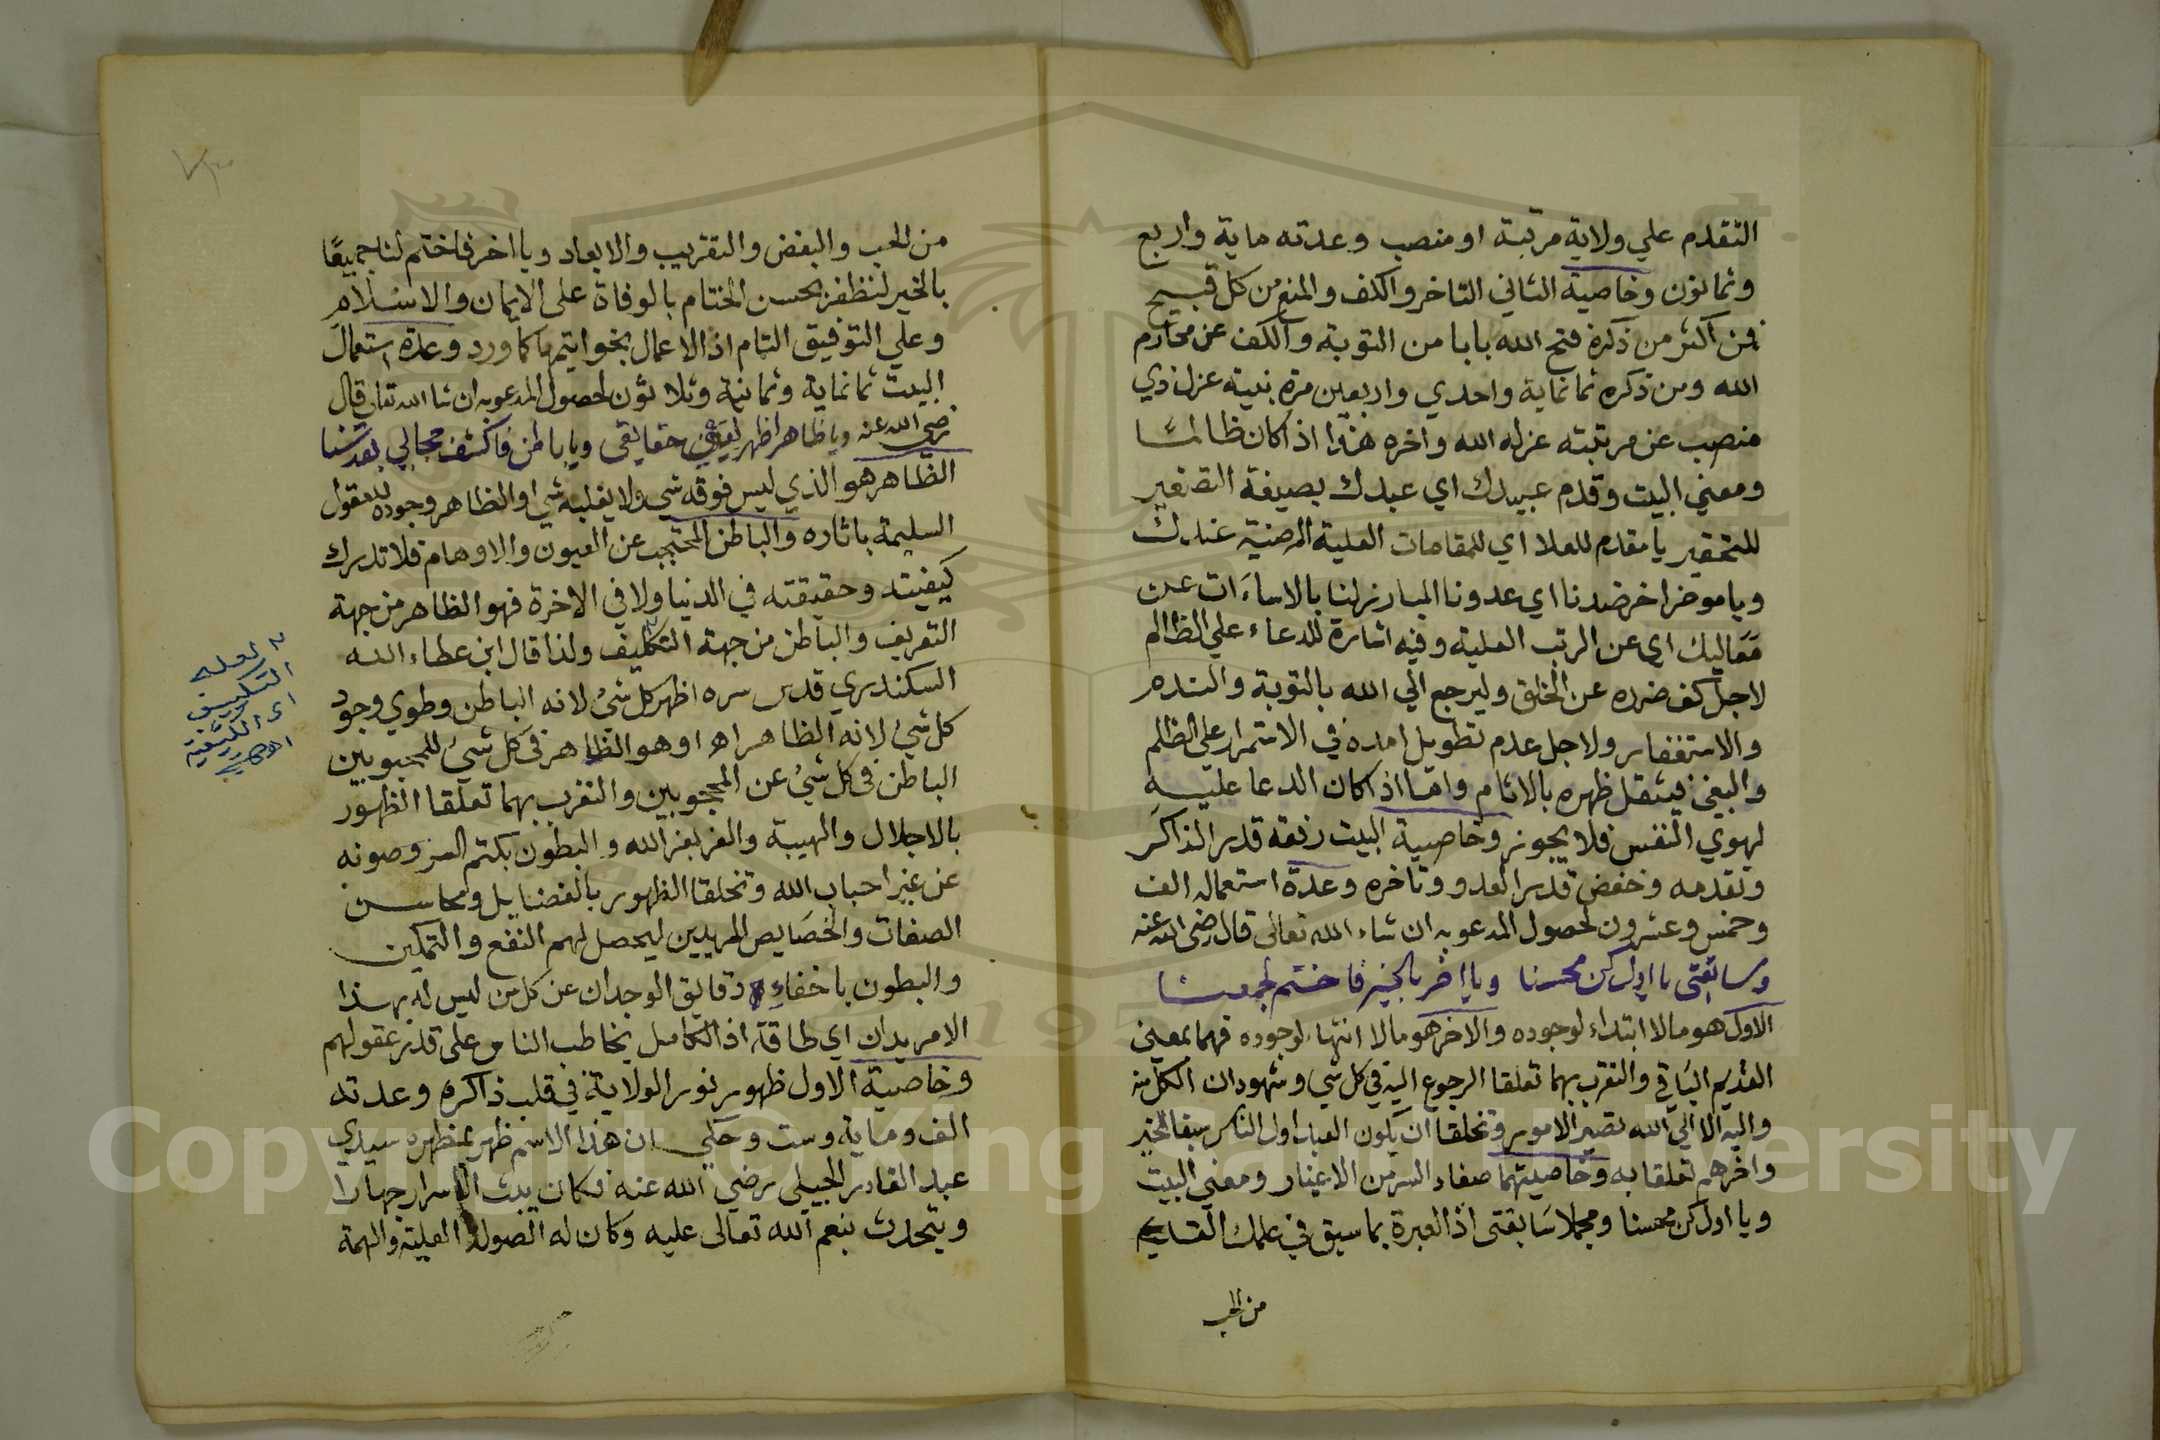 التقدم علي ولاية مرتبة او منصب وعدته ماية واربع
وثمانون وخاصية الثاني التاخر والكف والمنع من كل قبيح
فمن اكثر من ذكره فتح الله بابا من التوبة والكف عن محارم
الله ومن ذكره ثمانماية واحدي واربعين مرة بنية عزل ذي
منصب عن مرتبته عزله الله واخره هذا اذا كان ظالما
ومعني البيت وقدم عبيدك اي عبدك بصيغة التصغير
للتحقير يا مقدم للعلا اي للمقامات العلية المرضية عندك
ويا موخر اخر ضدنا اي عدونا المبارز لنا بالاساءات عن
مَعَاليك اي عن الرتب العلية وفيه اشارة للدعاء علي الظالم
لاجل كف ضرره عن الخلق وليرجع الي الله بالتوبة والندم
والاستغفار ولاجل عدم تطويل امده في الاستمرار علي الظلم
والبغي فيثقل ظهره بالاثام واما اذا كان الدعا عليه
لهوي النفس فلا يجوز وخاصية البيت رفعة قدر الذاكر
وتقدمه وخفض قدر العدو وتاخره وعدة استعماله الف
وخمس وعشرون لحصول المدعو به ان شاء الله تعالى قال رضى الله عنه
وسابقتى يا اول كن محسنا ويا اخر بالخير فاختم لجمعنا
الاول هو مالا ابتداء لوجوده والاخر هو مالا انتهاء لوجوده فهما بمعني
القديم الباقي والتقرب بهما تعلقا الرجوع اليه في كل شي وشهود ان الكل منه
واليه الا الي الله تصير الامور وتخلقا ان يكون العبد اول الناس سبقا للخير
واخرهم تعلقا به وخاصيتهما صفاء السر من الاغيار ومعني البيت
ويا اول كن محسنا ومجملا سابقتى اذ العبرة بما سبق في علمك القديم
من الحب
من الحب والبغض والتقريب والابعاد ويا اخر فاختم لنا جميعًا
بالخير لنظفر بحسن الختام بالوفاة على الايمان والاسلام
وعلي التوفيق التام اذ الاعمال بخواتيمها كما ورد وعدة استعمال
البيت ثمانماية وثمانية وثلاثون لحصول المدعو به ان شا الله تعالى قال
رضي الله عنه ويا ظاهر اظهر لعينى حقايقى ويا باطن فاكشف مجالي
الظاهر هو الذي ليس فوقه شي ولا يغلبه شي او الظاهر وجوده للعقول
السليمة باثاره والباطن المحتجب عن العيون والاوهام فلا تدرك
كيفيته وحقيقته في الدنيا ولا في الاخرة فهو الظاهر من جهة
التعريف والباطن من جهة التكليف ولذا قال ابن عطاء الله
السكندري قدس سره اظهر كل شئ لانه الباطن وطوي وجود
كل شئ لانه الظاهر اهـ او هو الظاهر في كل شئ للمحبوبين
الباطن في كل شئ عن المحجوبين والتقرب بهما تعلقا الظهور
بالاجلال والهيبة والعز بعز الله والبطون بكتم السر وصونه
عن غير احباب الله وتخلقا الظهور بالفضايل ومحاسن
الصفات والخصايص للمريدين ليحصل لهم النفع والتمكين
والبطون باخفاء دقايق الوجدان عن كل من ليس له بهذا
الامر يدان اي طاقة اذ الكامل يخاطب الناس على قدر عقولهم
وخاصية الاول ظهور نور الولاية في قلب ذاكره وعدته
الف وماية وست وحكي ان هذا الاسم ظهر بمظهره سيدي
عبد القادر الجيلي رضي الله عنه فكان يبث الاسرار جهارا
ويتحدث بنعم الله تعالى عليه وكان له الصولة العلية والهمة
لعله
التكييف
اي الكيفية
Copyright © King Saud University
1957